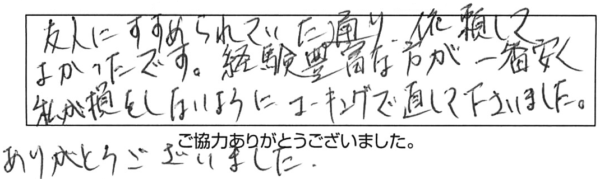 友人にすすめられていた通り、依頼して
よかったです。経験豊富な方が一番安く
私が損をしないようにコーキングで直して下さいました。
ご協力ありがとうございました。
ありがとうございました.